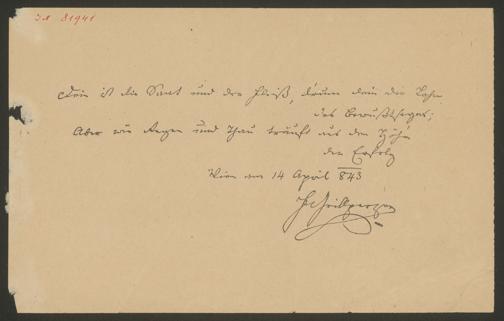 I.N. 81941
Dein ist die Saat und der Fleiß, drum dein der Lohn
des Bewußtseyns;
Aber wie Regen und Thau träuft aus den Höhn
der Erfolg
Wien am 14 April 843
Grillparzer